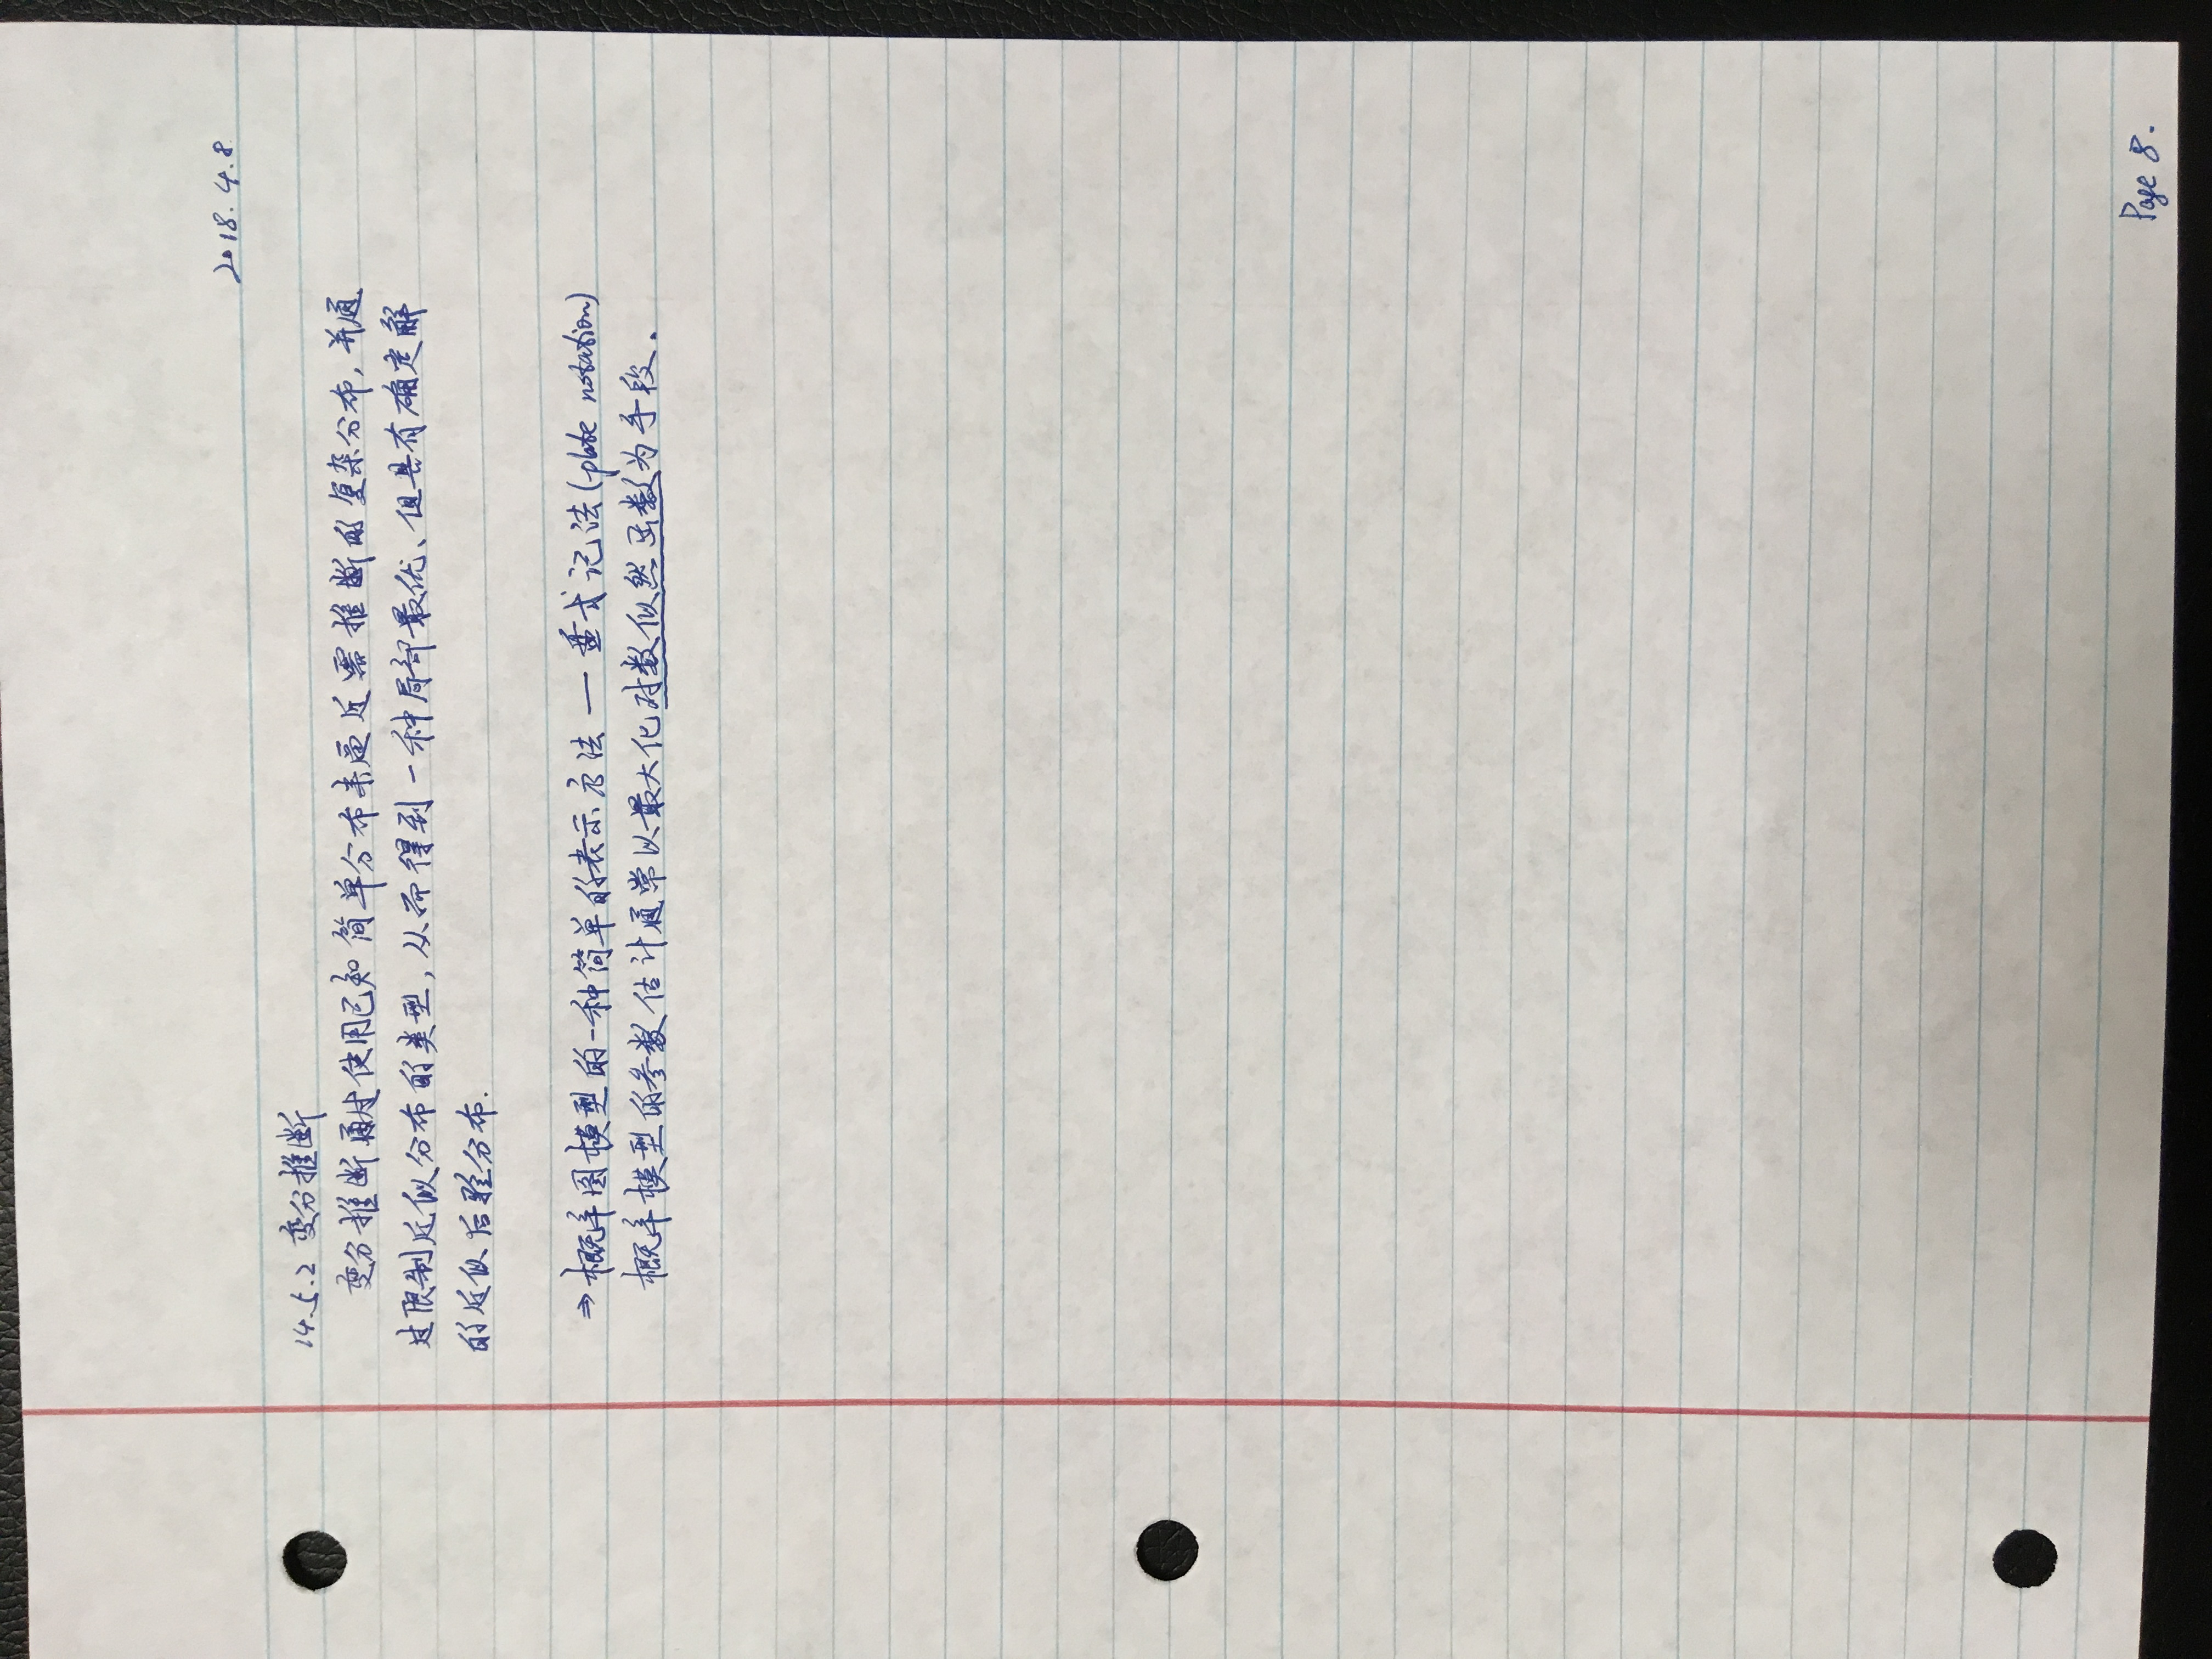 2018.4.8
14.5.2 变分推断
变分推断通过使用已知简单分布来逼近需推断的复杂分布,并通
过限制近似分布的类型,从而得到一种局部最优、但具有确定解
的近似后验分布.
⇒概率图模型的一种简单的表示方法 — 盘式记法(plate notation)
概率模型的参数估计通常以最大化对数似然函数为手段.
Page 8.